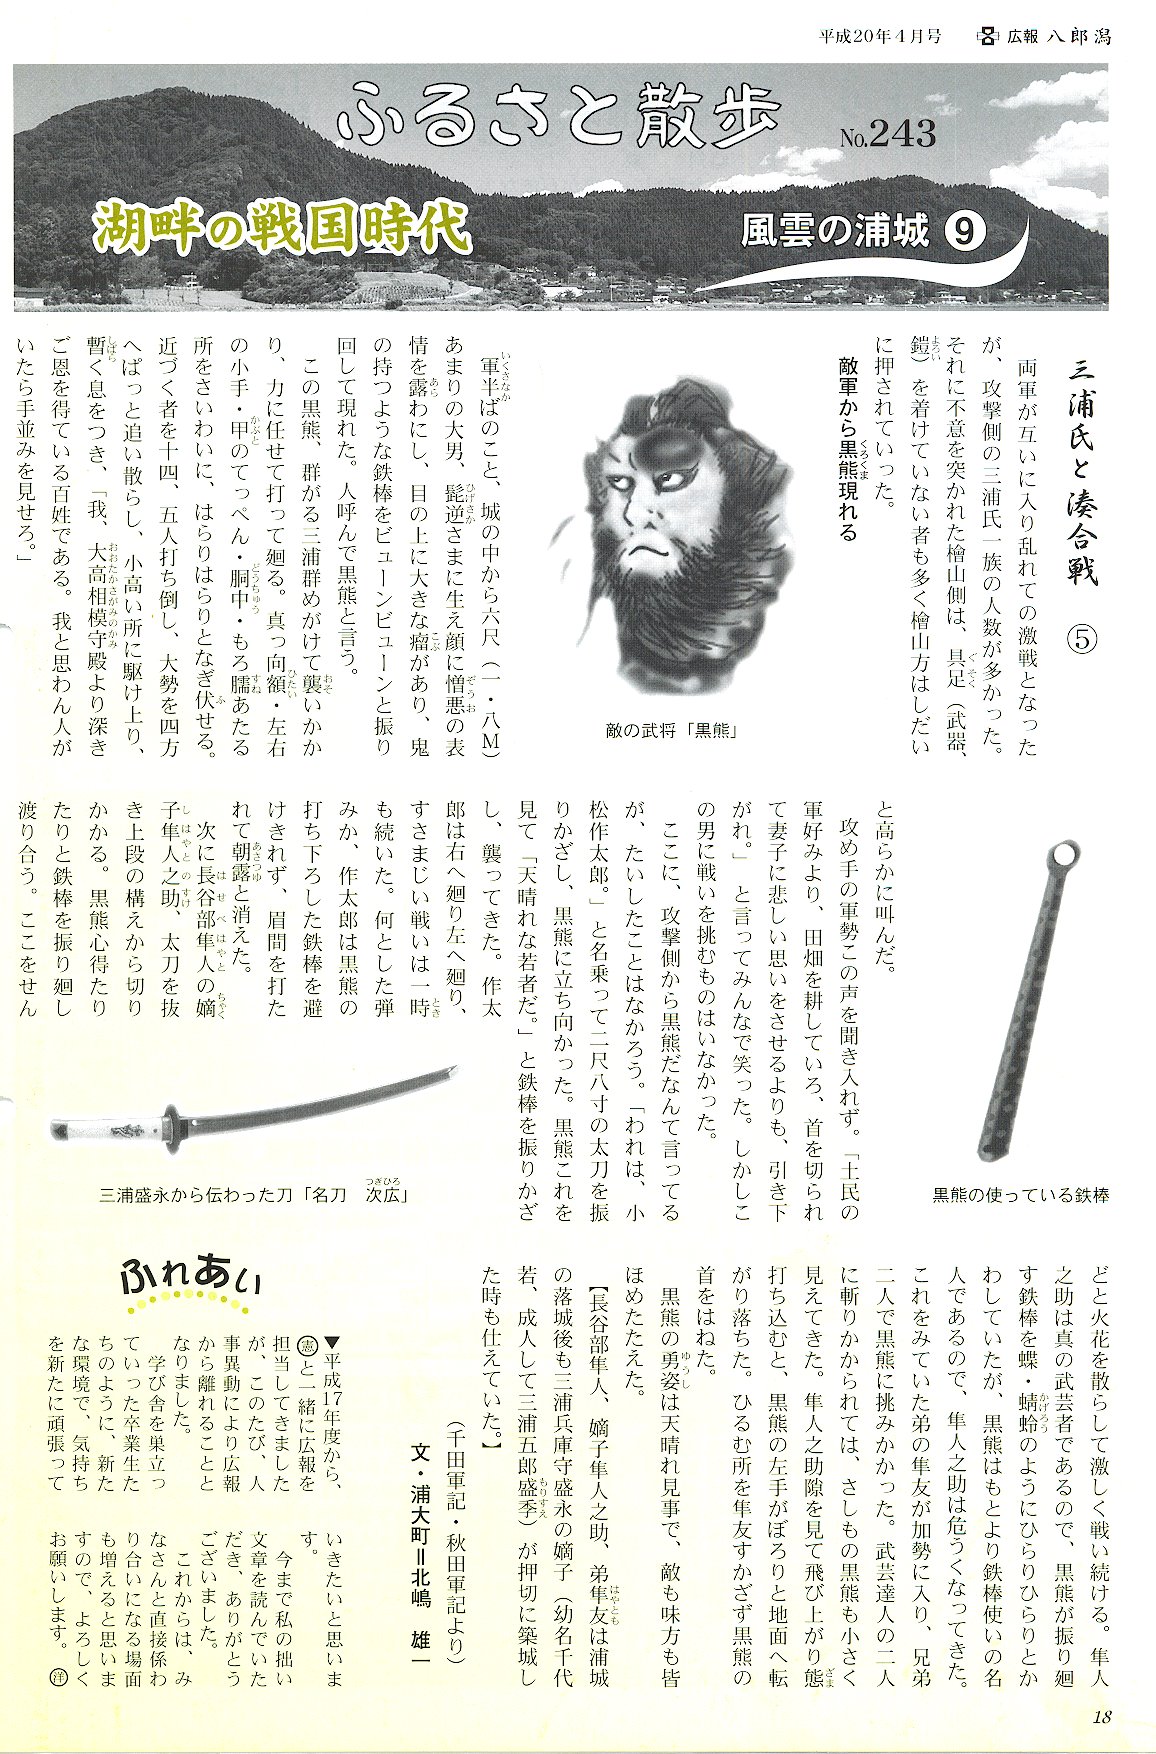 平成20年4月号 広報 八郎潟
ふるさと散歩 No.243
湖畔の戦国時代
風雲の浦城 9
三浦氏と湊合戦 ⑤
両軍が互いに入り乱れての激戦となった
が、攻撃側の三浦氏一族の人数が多かった。
それに不意を突かれた檜山側は、具足（武器、
鎧）を着けていない者も多く檜山方はしだい
に押されていった。
敵軍から黒熊現れる
敵の武将「黒熊」
軍半ばのこと、城の中から六尺（一・八M）
あまりの大男、髭逆さまに生え顔に憎悪の表
情を露わにし、目の上に大きな瘤があり、鬼
の持つような鉄棒をビューンビューンと振り
回して現れた。人呼んで黒熊と言う。
この黒熊、群がる三浦群めがけて襲いかか
り、力に任せて打って廻る。真っ向額・左右
の小手・甲のてっぺん・胴中・もろ臑あたる
所をさいわいに、はらりはらりとなぎ伏せる。
近づく者を十四、五人打ち倒し、大勢を四方
へぱっと追い散らし、小高い所に駆け上り、
暫く息をつき、「我、大高相模守殿より深き
ご恩を得ている百姓である。我と思わん人が
いたら手並みを見せろ。」
黒熊の使っている鉄棒
と高らかに叫んだ。
攻め手の軍勢この声を聞き入れず。「土民の
軍好みより、田畑を耕していろ、首を切られ
て妻子に悲しい思いをさせるよりも、引き下
がれ。」と言ってみんなで笑った。しかしこ
の男に戦いを挑むものはいなかった。
ここに、攻撃側から黒熊だなんて言ってる
が、たいしたことはなかろう。「われは、小
松作太郎。」と名乗って二尺八寸の太刀を振
りかざし、黒熊に立ち向かった。黒熊これを
見て「天晴れな若者だ。」と鉄棒を振りかざ
し、襲ってきた。作太
郎は右へ廻り左へ廻り、
すさまじい戦いは一時
も続いた。何とした弾
みか、作太郎は黒熊の
打ち下ろした鉄棒を避
けきれず、眉間を打た
れて朝露と消えた。
次に長谷部隼人の嫡
子隼人之助、太刀を抜
き上段の構えから切り
かかる。黒熊心得たり
たりと鉄棒を振り廻し
渡り合う。ここをせん
三浦盛永から伝わった刀「名刀 次広」
どと火花を散らして激しく戦い続ける。隼人
之助は真の武芸者であるので、黒熊が振り廻
す鉄棒を蝶・蜻蛉のようにひらりひらりとか
わしていたが、黒熊はもとより鉄棒使いの名
人であるので、隼人之助は危うくなってきた。
これをみていた弟の隼友が加勢に入り、兄弟
二人で黒熊に挑みかかった。武芸達人の二人
に斬りかかられては、さしもの黒熊も小さく
見えてきた。隼人之助隙を見て飛び上がり態
打ち込むと、黒熊の左手がぼろりと地面へ転
がり落ちた。ひるむ所を隼友すかざず黒熊の
首をはねた。
黒熊の勇姿は天晴れ見事で、敵も味方も皆
ほめたたえた。
【長谷部隼人、嫡子隼人之助、弟隼友は浦城
の落城後も三浦兵庫守盛永の嫡子（幼名千代
若、成人して三浦五郎盛季）が押切に築城し
た時も仕えていた。】
（千田軍記・秋田軍記より）
文・浦大町＝北嶋 雄一
ふれあい
▼平成17年度から、
㊪と一緒に広報を
担当してきました
が、このたび、人
事異動により広報
から離れることと
なりました。
学び舎を巣立っ
ていった卒業生た
ちのように、新た
な環境で、気持ち
を新たに頑張って
いきたいと思いま
す。
今まで私の拙い
文章を読んでいた
だき、ありがとう
ございました。
これからは、み
なさんと直接係わ
り合いになる場面
も増えると思いま
すので、よろしく
お願いします。 洋
18